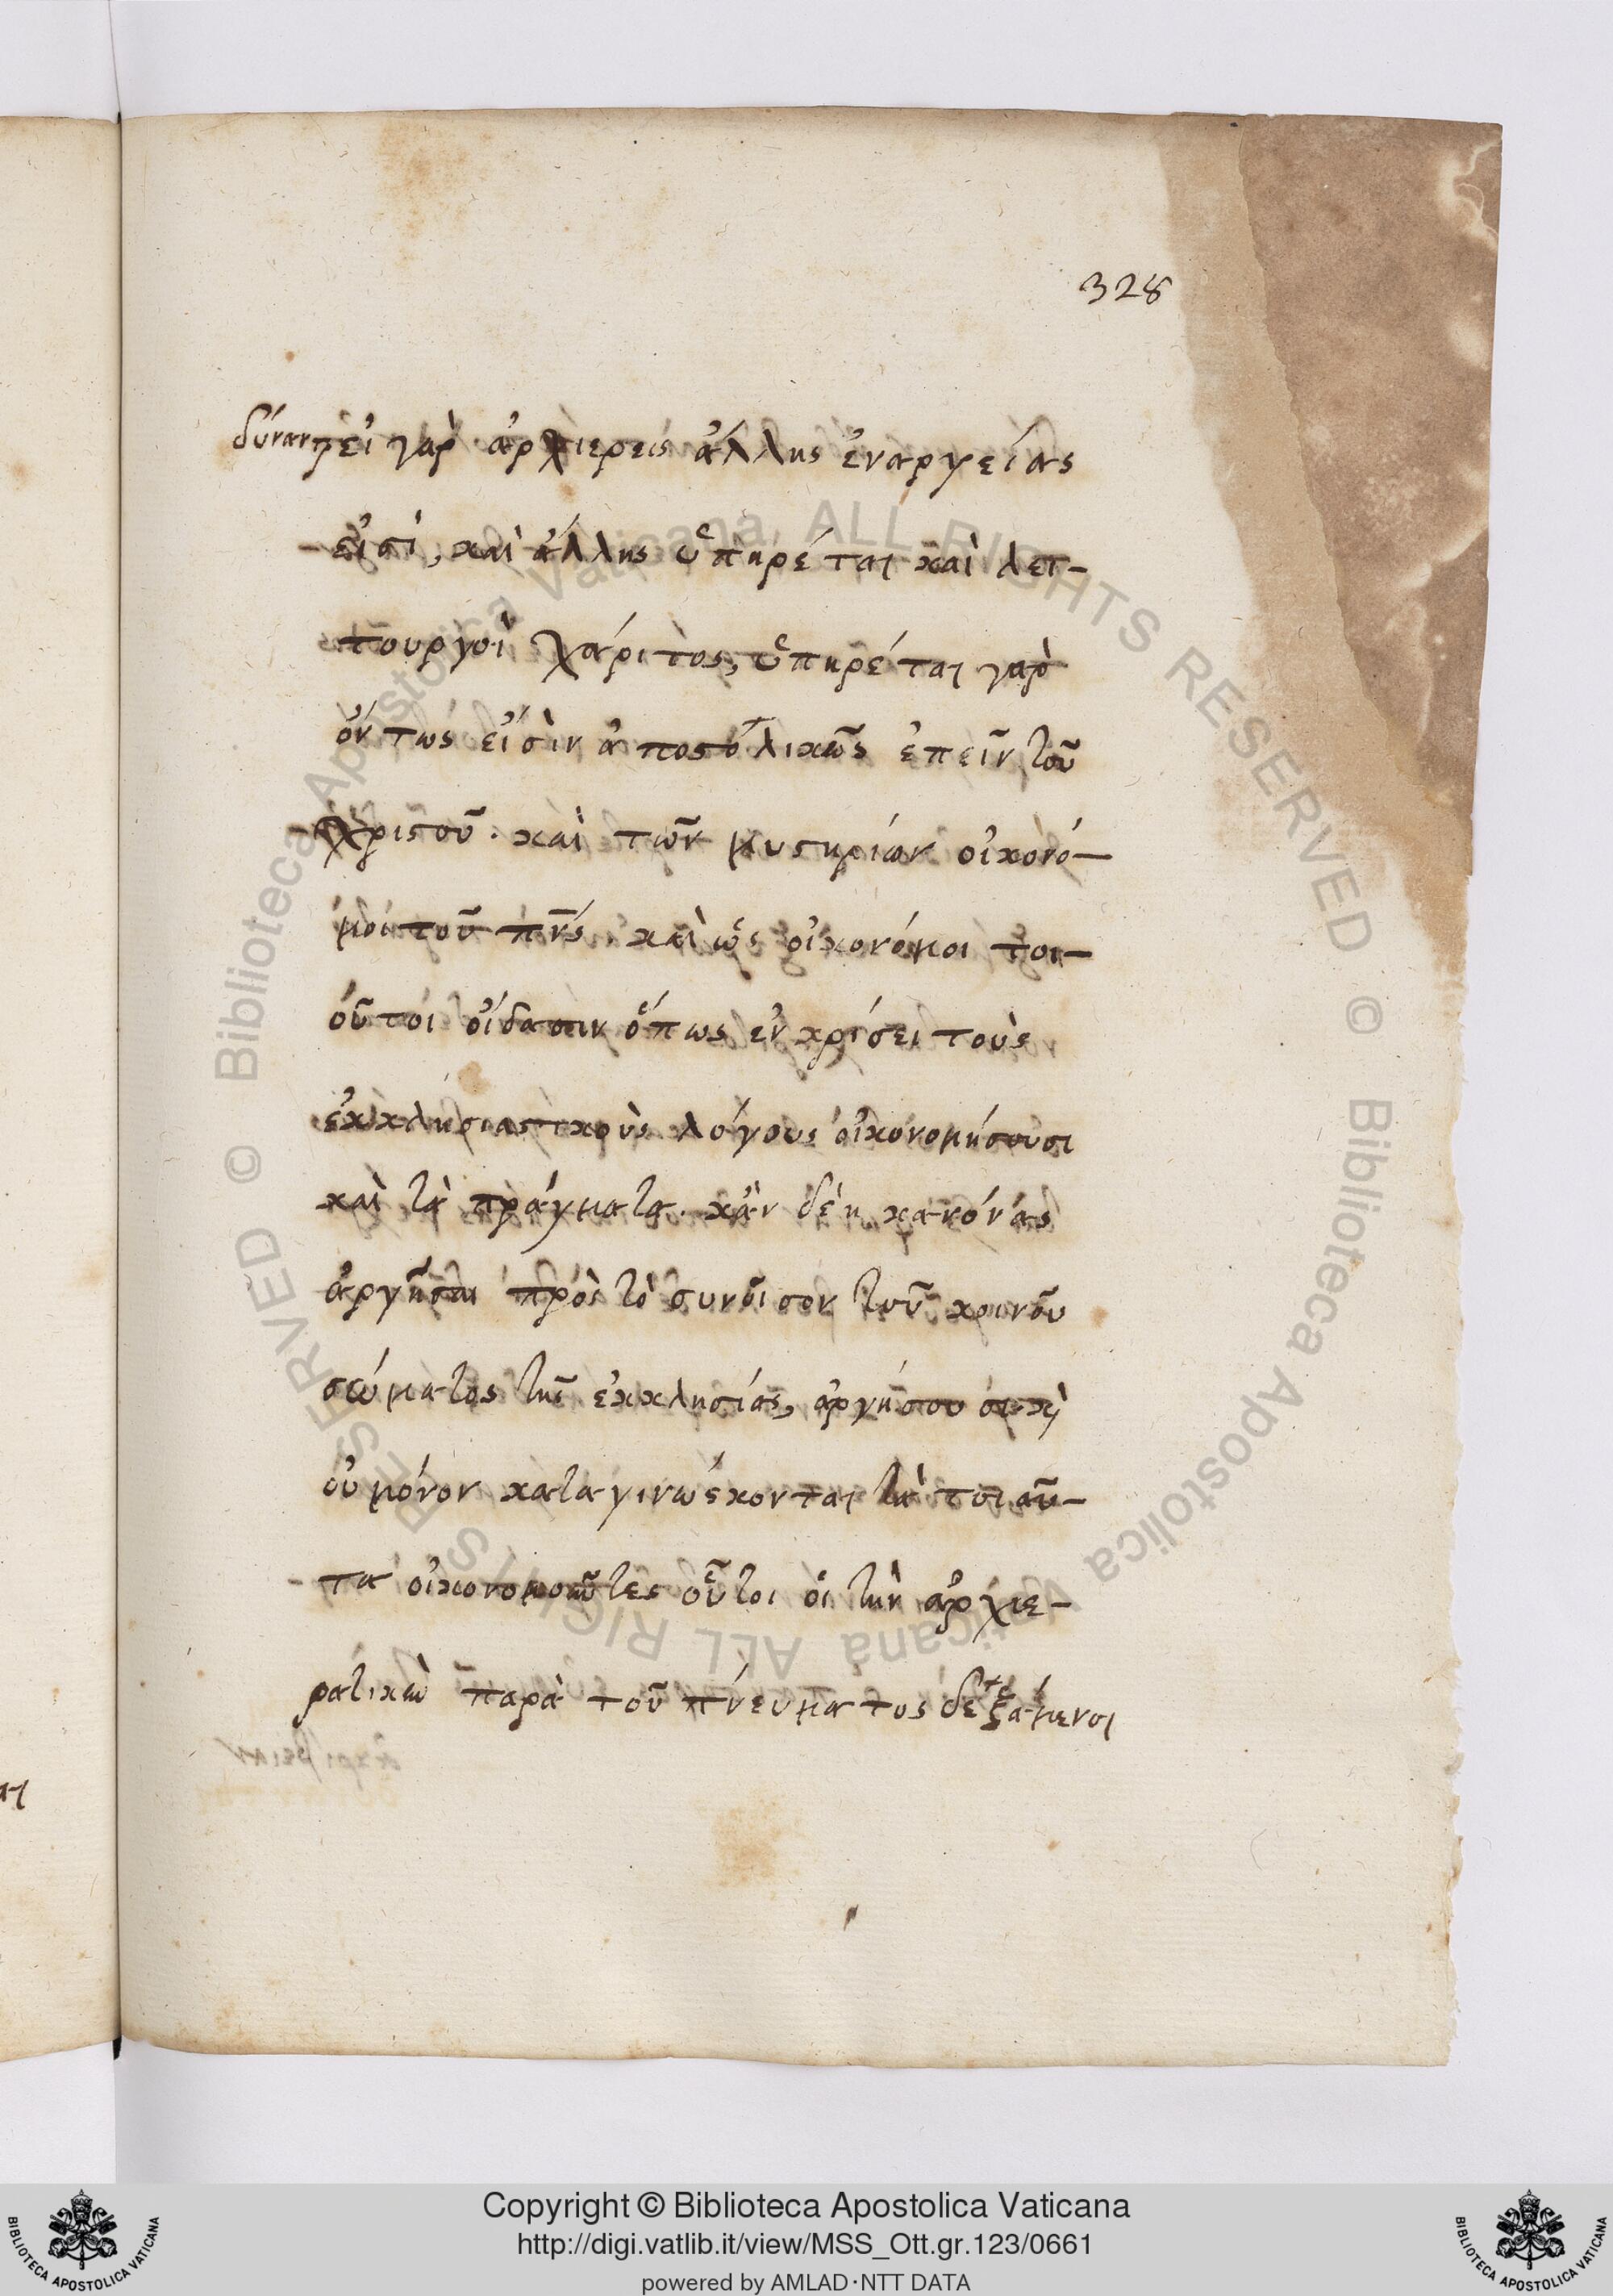 328
γαρ ἀρχιερεις ἄλλης ἐναργείας
εἰσί, καὶ ἄλλης ὑπηρέται καὶ λει-
τουργοὶ χάριτος, ὑπηρέται γαρ
ὄντως εἰσὶν ἀποστολικῶς ἐπεῖν τοῦ
χριστοῦ. καὶ τῶν μυστηρίων οἰκονό-
μοι τοῦ πν̅ς. καὶ ὡς οἰκονόμοι τοι-
οῦτοι οἴδασιν ὅπως ἐν κρίσει τοὺς
ἐκκλησιαστικοὺς λόγους οἰκονομήσουσι
καὶ τὰ πράγματα. κἂν δέη κανόνας
ἀργῆσαι πρὸς τὸ συνοῖσον τοῦ κοινοῦ
σώματος τῆς ἐκκλησίας, ἀργήσουσι καὶ
οὐ μόνον καταγινώσκονται τὰ τοιαῦ-
τα οἰκονομοῦντες οὗτοι οἱ τὴν ἀρχιε-
ρατικὴν παρὰ τοῦ πνεύματος δεξάμενοι
Copyright © Biblioteca Apostolica Vaticana
http://digi.vatlib.it/view/MSS_Ott.gr.123/0661
powered by AMLAD·NTT DATA